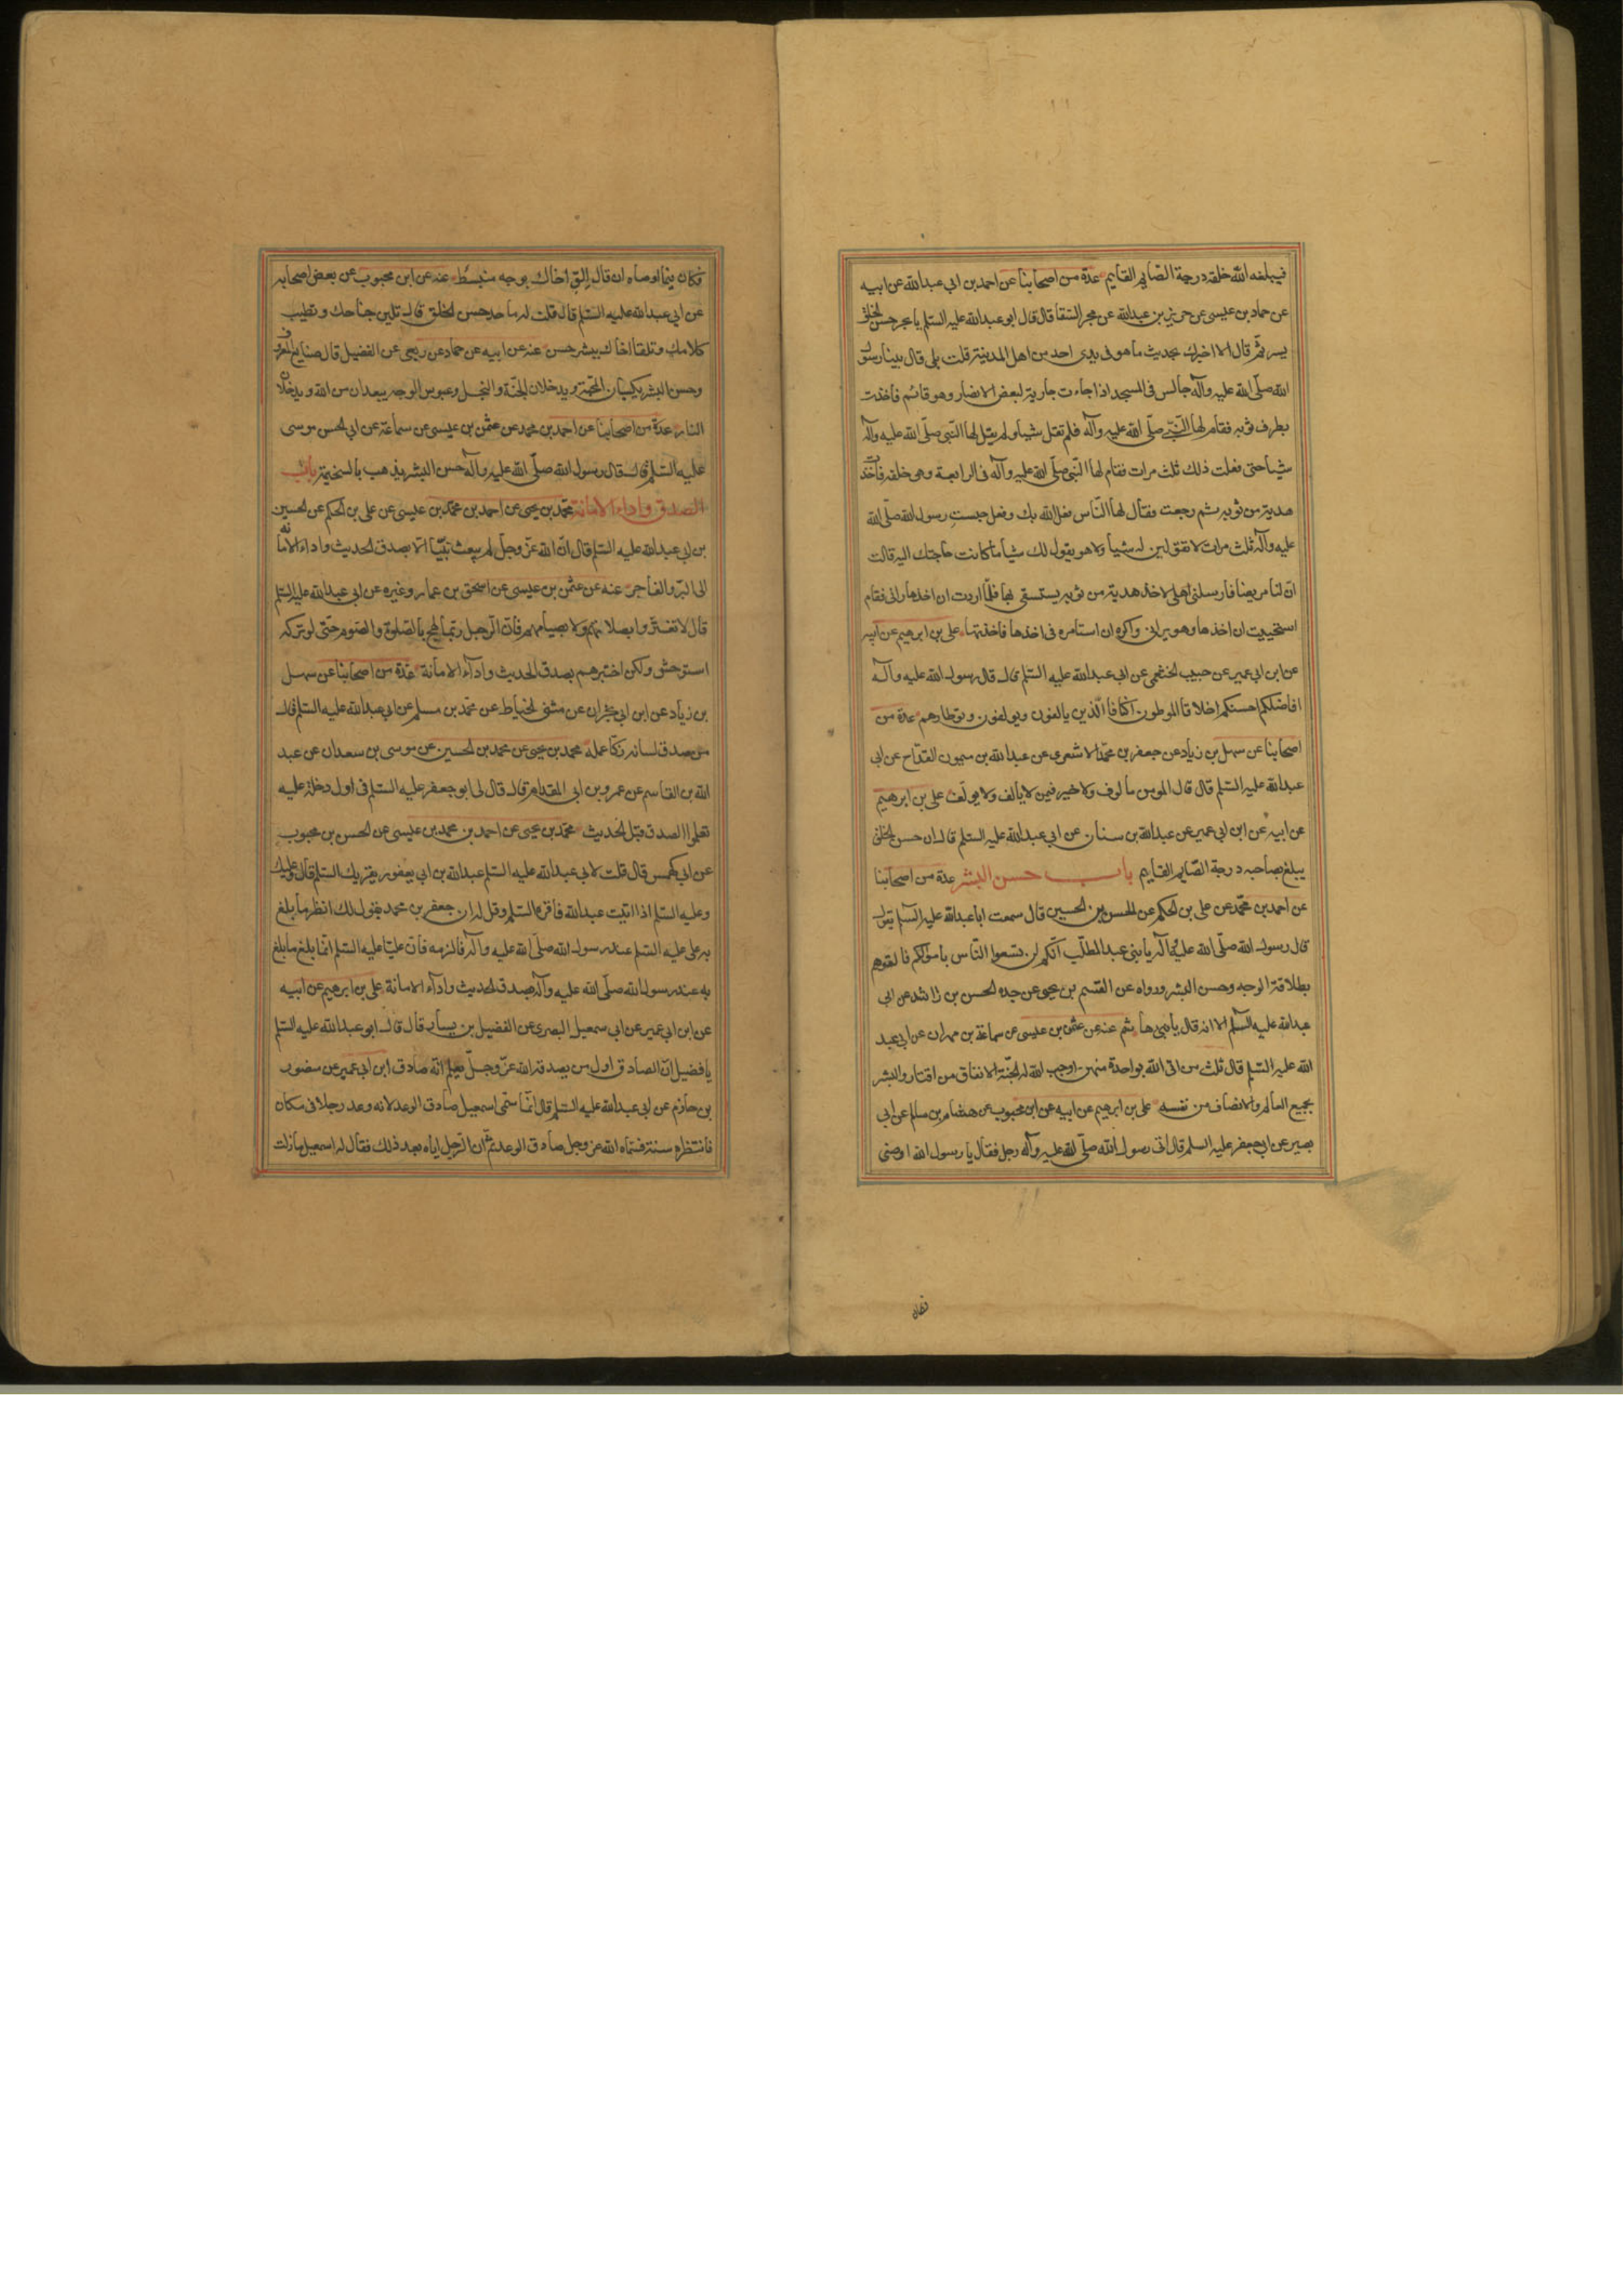 فيبلغه الله خلقه درجة الصّايم القايم عدّة من اصحابنا عن احمد بن ابي عبدالله عن ابيه
عن حماد بن عيسى عن حريز بن عبدالله عن بحر السّقا قال قال ابو عبدالله عليه السّلم يا بحر حسن الخلق
يسر ثمّ قال الا اخبرك بحديث ما هو في يدي احد من اهل المدينة قلت بلى قال بينا رسول
الله صلّى الله عليه وآله جالس في المسجد اذا جاءت جارية لبعض الانصار وهو قائم فأخذت
بطرف ثوبه فقام لها النّبيّ صلّى الله عليه وآله فلم تقل شيا ولم يقل لها النّبي صلّى الله عليه وآله
شيا حتى فعلت ذلك ثلث مرات فقام لها النّبي صلّى الله عليه وآله في الرابعة وهي خلفه فأخذت
هدبة من ثوبه ثم رجعت فقال لها النّاس فعل الله بك وفعل حبست رسول الله صلّى الله
عليه وآله ثلث مرات لا تقولين له شيا ولا هو يقول لك شيا ما كانت حاجتك اليه قالت
انّ لنا مريضا فارسلني اهلي لاخذ هدبة من ثوبه يستسقي بها فلمّا اردت ان اخذها راني فقام
استحييت ان اخذها وهو يراني واكره ان استامره في اخذها فاخذتها علي بن ابرهيم عن ابيه
عن ابن ابي عمير عن حبيب الخثعمي عن ابي عبدالله عليه السّلم قال قال رسول الله عليه وآله
افاضلكم احسنكم اخلاقا الموطون اكنافا الّذين يالفون ويولفون وتوطا رحالهم عدة من
اصحابنا عن سهل بن زياد عن جعفر بن محمّد الاشعري عن عبدالله بن ميمون القدّاح عن ابي
عبدالله عليه السّلم قال قال المومن مألوف ولا خير فيمن لا يألف ولا يولف علي بن ابرهيم
عن ابيه عن ابن ابي عمير عن عبدالله بن سنان عن ابي عبدالله عليه السّلم قال ان حسن الخلق
يبلغ بصاحبه درجة الصّايم القايم باب حسن البشر عدة من اصحابنا
عن احمد بن محمّد عن علي بن الحكم عن الحسن بن الحسين قال سمعت ابا عبدالله عليه السّلم يقول
قال رسول الله صلّى الله عليه وآله يا بني عبد المطلّب انّكم لن تسعوا النّاس بأموالكم فالقوهم
بطلاقة الوجه وحسن البشر ورواه عن القسم بن يحيى عن جده الحسن بن راشد عن ابي
عبدالله عليه السّلم الا انه قال يا بني هاشم عنه عن عثمن بن عيسى عن سماعة بن مهران عن ابي عبد
الله عليه السّلم قال ثلث من اتى الله بواحدة منهن اوجب الله له الجنّة الانفاق من اقتار والبشر
بجميع العالم والانصاف من نفسه علي بن ابرهيم عن ابيه عن ابن محبوب عن هشام بن سالم عن ابي
بصير عن ابي جعفر عليه السلم قال اتى رسول الله صلّى الله عليه وآله رجل فقال يا رسول الله اوصني
فكان
فكان فيما اوصاه ان قال إلق اخاك بوجه منبسط عنه عن ابن محبوب عن بعض اصحابه
عن ابي عبدالله عليه السّلم قال قلت له ما حد حسن الخلق قال تلين جناحك وتطيب
كلامك وتلقا اخاك ببشر حسن عنه عن ابيه عن حماد عن ربعي عن الفضيل قال صنايع المعروف
وحسن البشر يكسبان المحبّة ويدخلان الجنّة والبخل وعبوس الوجه يبعدان من الله ويدخلان
النار عدّة من اصحابنا عن احمد بن محمد عن عثمن بن عيسى عن سماعة عن ابي الحسن موسى
عليه السّلم قال قال رسول الله صلّى الله عليه وآله حسن البشر يذهب بالسخيمة باب
الصدق واداء الامانة محمّد بن يحيى عن احمد بن محمّد بن عيسى عن علي بن الحكم عن الحسين
بن ابي عبدالله عليه السّلم قال انّ الله عزّ وجلّ لم يبعث نبيّا الّا بصدق الحديث واداء الامانة
الى البرّ والفاجر عنه عن عثمن بن عيسى عن اسحق بن عمار وغيره عن ابي عبدالله عليه السّلم
قال لا تغترّوا بصلاتهم ولا بصيامهم فانّ الرّجل ربّما لهج بالصّلوة والصّوم حتّى لو تركه
استوحش ولكن اختبرهم بصدق الحديث واداء الامانة عدّة من اصحابنا عن سهل
بن زياد عن ابن ابي نجران عن مثنى الحنّاط عن محمّد بن مسلم عن ابي عبدالله عليه السّلم قال
من صدق لسانه زكّا عمله محمد بن يحيى عن محمد بن الحسين عن موسى بن سعدان عن عبد
الله بن القاسم عن عمرو بن ابي المقدام قال قال لي ابو جعفر عليه السّلم في اول دخلة عليه
تعلموا الصدق قبل الحديث محمّد بن يحيى عن احمد بن محمد بن عيسى عن الحسن بن محبوب
عن ابي كهمس قال قلت لابي عبدالله عليه السّلم عبدالله بن ابي يعفور يقريك السّلم قال وعليك
وعليه السّلم اذا اتيت عبدالله فأقره السّلم وقل له ان جعفر بن محمد يقول لك انظر ما بلغ
به علي عليه السّلم عند رسول الله صلّى الله عليه وآله فالزمه فانّ عليّا عليه السّلم انّما بلغ ما بلغ
به عند رسول الله صلّى الله عليه وآله بصدق الحديث واداء الامانة علي بن ابرهيم عن ابيه
عن ابن ابي عمير عن ابي سمعيل البصري عن الفضيل بن يسار قال قال ابو عبدالله عليه السّلم
يا فضيل انّ الصادق اول من يصدقه الله عزّ وجلّ يعلم انّه صادق ابن ابي عمير عن منصور
بن حازم عن ابي عبدالله عليه السّلم قال انّما سمّى اسمعيل صادق الوعد لانه وعد رجلا في مكان
فانتظره سنة فسمّاه الله عز وجل صادق الوعد ثمّ ان الرّجل اياه بعد ذلك فقال له اسمعيل ما زلت